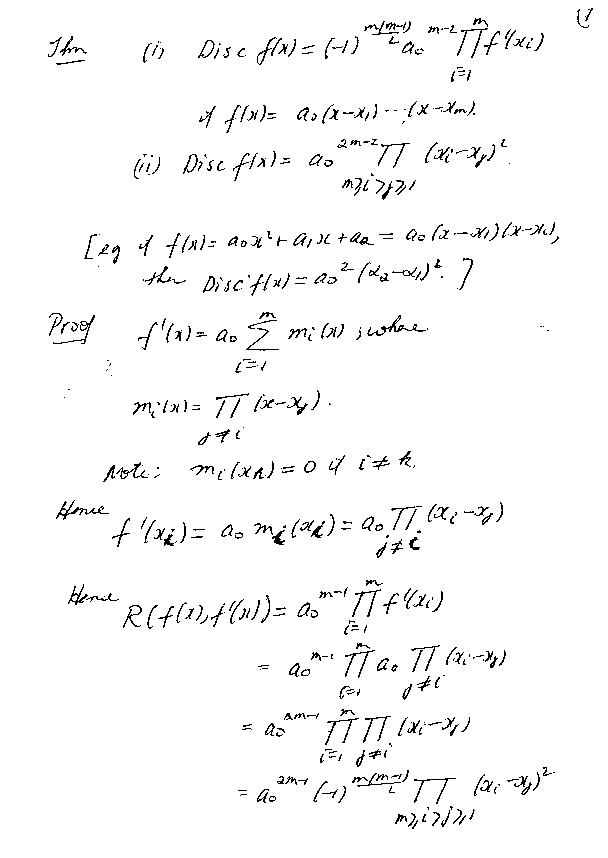 (1
Thm (i) Disc f(x) = (-1)^{m(m-1)/2} a₀^{m-2} ∏_{i=1}^{m} f'(xᵢ)
if f(x) = a₀(x-x₁)⋯(x-xₘ).
(ii) Disc f(x) = a₀^{2m-2} ∏_{m≥i>j≥1} (xᵢ-xⱼ)².
[eg if f(x) = a₀x² + a₁x + a₂ = a₀(x-x₁)(x-x₂),
then Disc f(x) = a₀²(α₂-α₁)². ]
Proof f'(x) = a₀ ∑_{i=1}^{m} mᵢ(x), where
mᵢ(x) = ∏_{j≠i} (x-xⱼ).
Note: mᵢ(x_k) = 0 if i ≠ k.
Hence
f'(xᵢ) = a₀ mᵢ(xᵢ) = a₀ ∏_{j≠i} (xᵢ-xⱼ)
Hence
R(f(x), f'(x)) = a₀^{m-1} ∏_{i=1}^{m} f'(xᵢ)
= a₀^{m-1} ∏_{i=1}^{m} a₀ ∏_{j≠i} (xᵢ-xⱼ)
= a₀^{2m-1} ∏_{i=1}^{m} ∏_{j≠i} (xᵢ-xⱼ)
= a₀^{2m-1} (-1)^{m(m-1)/2} ∏_{m≥i>j≥1} (xᵢ-xⱼ)²